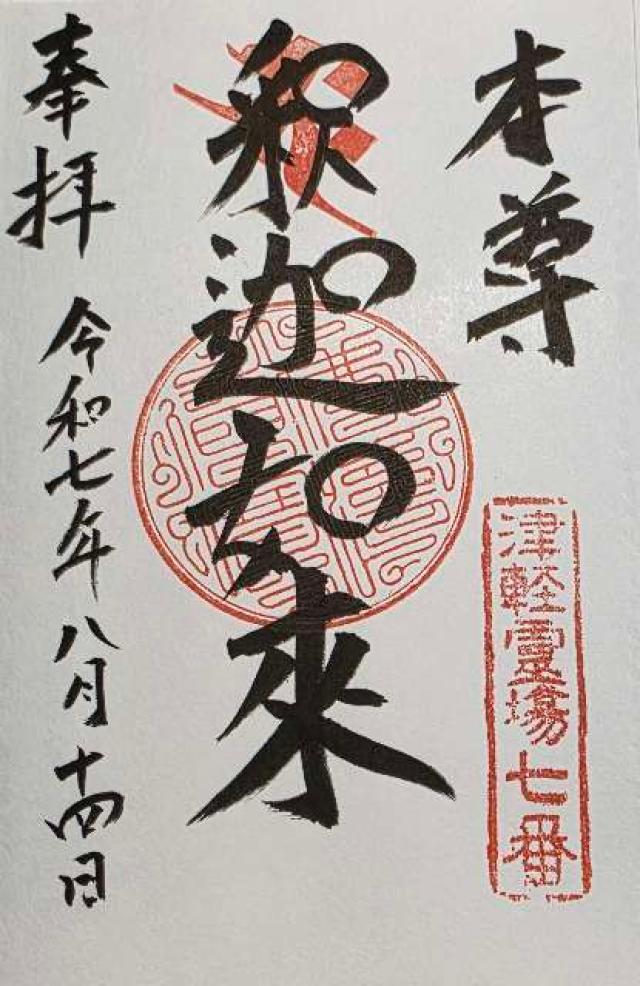 本尊
津軽霊場七番
釈迦如來
奉拝
令和七年八月十四日